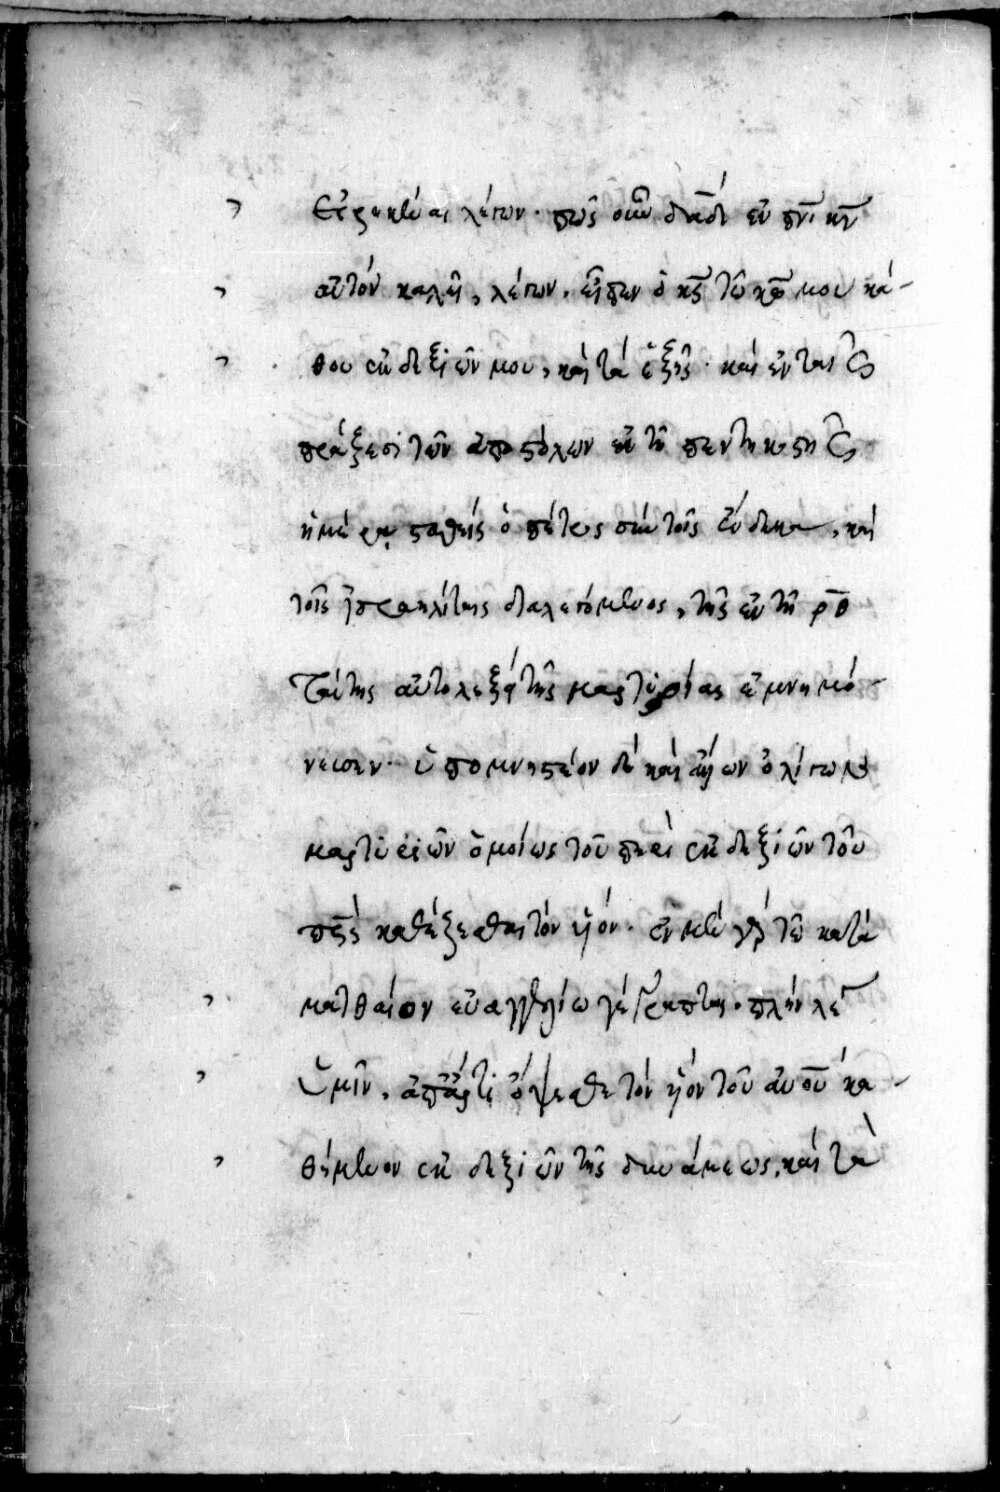 εἴρηκέναι λέγων· πῶς οὖν δαδ̅ ἐν πνι̅ κν̅
αὐτὸν καλεῖ, λέγων, εἶπεν ὁ κς̅ τῶ κω̅ μου κά-
θου ἐκ δεξιῶν μου, καὶ τὰ ἑξῆς· καὶ ἐν ταῖς
πράξεσι τῶν ἀποστόλων ἐν τῆ πεντηκοστῆς
ἡμέρα, σταθεὶς ὁ πέτρος σὺν τοῖς ἕνδεκα, καὶ
τοῖς ἰσραηλίταις διαλεγόμενος, τῆς ἐν τῆ ρθ̅
ταύτης αὐτολεξὶ τῆς μαρτυρίας ἐμνημό-
νευσεν· ὑπομνηστέον δὲ καὶ ἄλλων ὀλίγων
μαρτυριῶν ὁμοίως τοῦ περὶ ἐκ δεξιῶν τοῦ
πρς̅ καθέζεσθαι τὸν υἱόν· ἐν μὲν γὰρ τῶ κατὰ
ματθαῖον εὐαγγελίω γέγραπται· πλὴν λέγω
ὑμῖν, ἀπάρτι ὄψεσθε τὸν υἱὸν τοῦ ἀνου̅ κα-
θήμενον ἐκ δεξιῶν τῆς δυνάμεως, καὶ τὰ